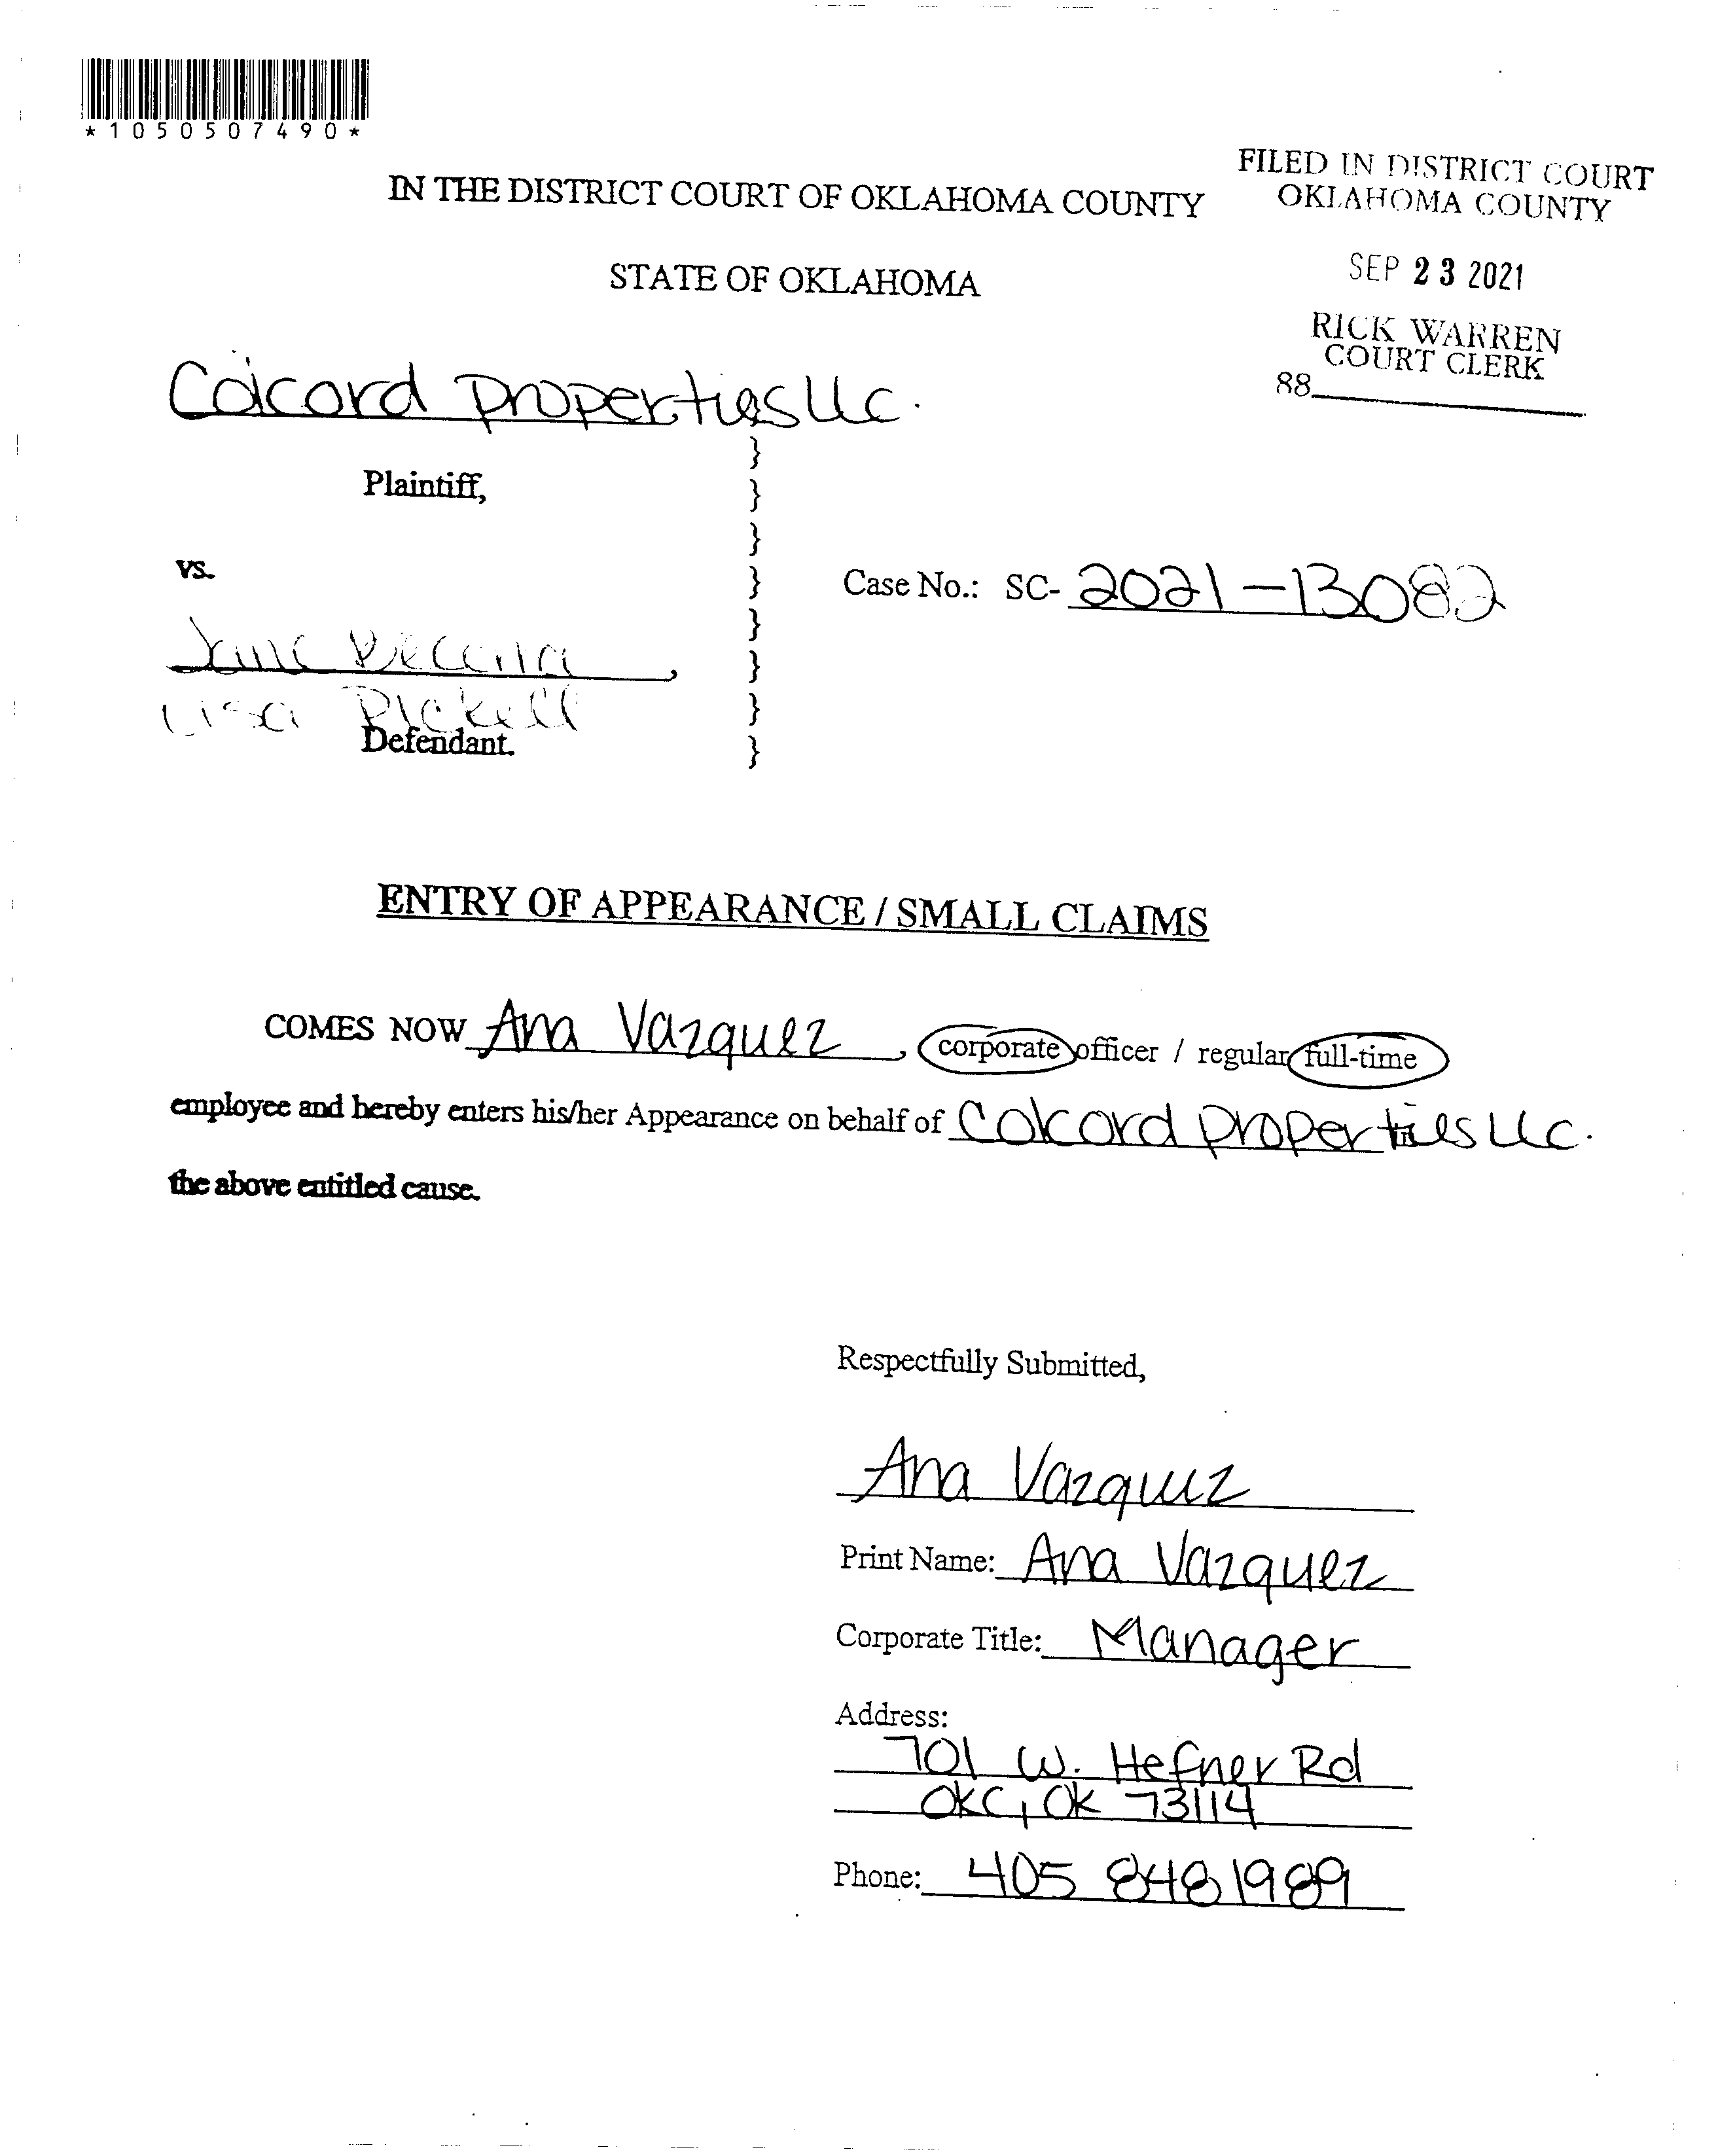 *1050507490*
FILED IN DISTRICT COURT
OKLAHOMA COUNTY
IN THE DISTRICT COURT OF OKLAHOMA COUNTY
STATE OF OKLAHOMA
SEP 23 2021
RICK WARREN
COURT CLERK
88
Colcord properties llc.
Plaintiff,
vs.
Case No.: SC- 2021-13082
Lisa Pickell
Defendant.
}
}
}
}
}
}
}
}
ENTRY OF APPEARANCE / SMALL CLAIMS
COMES NOW Ana Vazquez, corporate officer / regular full-time
employee and hereby enters his/her Appearance on behalf of Colcord properties llc.
the above entitled cause.
Respectfully Submitted,
Ana Vazquez
Print Name: Ana Vazquez
Corporate Title: Manager
Address:
701 W. Hefner Rd
OKC, OK 73114
Phone: 405 848 1989